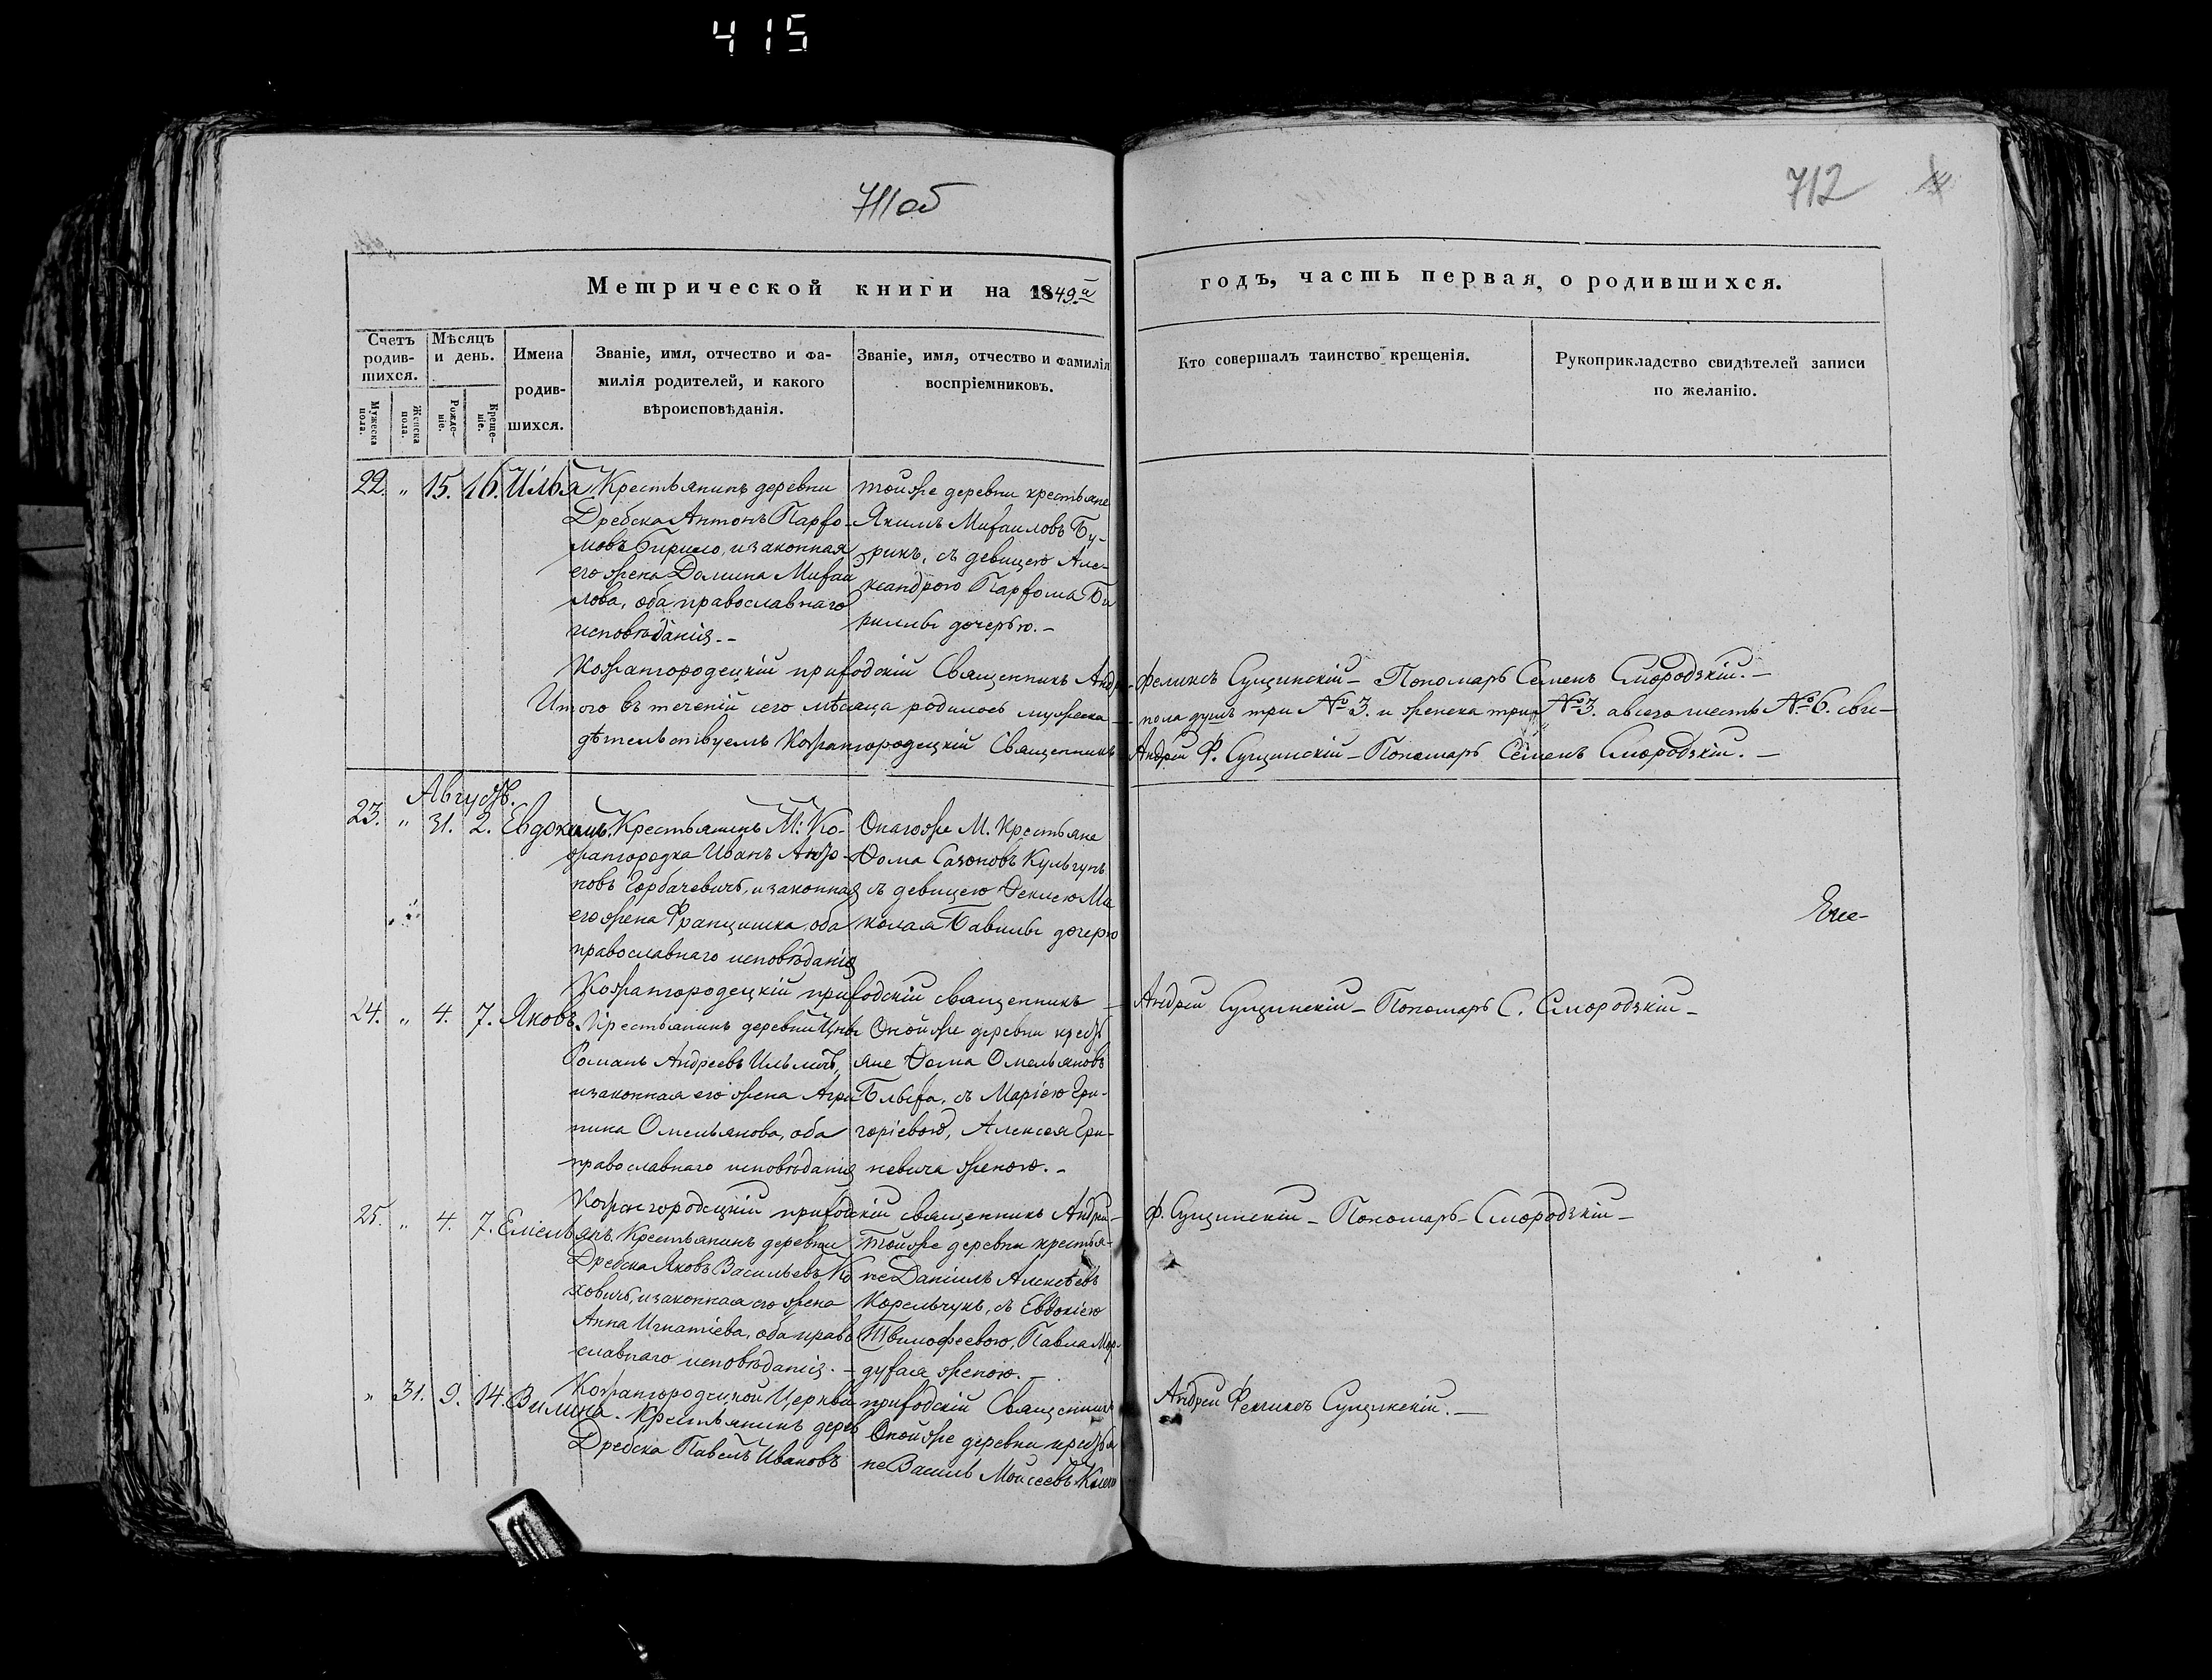 415
711об
712
Метрической книги на 1849.й
годъ, часть первая, о родившихся.
Счетъ родив-шихся.
Мѣсяцъ и день.
Имена родив-шихся.
Званіе, имя, отчество и фа-
милія родителей, и какого
вѣроисповѣданія.
Званіе, имя, отчество и фамилія
воспріемниковъ.
Кто совершалъ таинство крещенія.
Рукоприкладство свидѣтелей записи
по желанію.
Мужеска пола.
Женска пола.
Рожде-ніе.
Креще-ніе.
22. „ 15. 16. Илья
Крестьянинъ деревни
Дребска Антонъ Парфо-
мовъ Бирило, и законная
его жена Домина Михай
лова, оба православнаго
исповѣданія. -
тойже деревни крестьяне
Якимъ Михаиловъ Бу-
рикъ, съ девицею Але-
ксандрою Парфома Би
риллы дочерью. -
Кожангородецкій приходскій Священникъ Андр-
феликсъ Сущинскій - Пономарь Семенъ Смородзкій. -
Итого въ теченіи сего мѣсяца родилось мужеска -
- пола душъ три № 3. и женска три № 3. а всего шесть № 6. сви-
дѣтельствуемъ Кожангородецкій Священникъ
Андрей Ф. Сущинскій - Пономарь Семенъ Смородзкій. -
Августъ.
23. „ 31. 2. Евдокимъ.
Крестьянинъ М: Ко-
жангородка Иванъ
новъ Горбачевичъ, и законная
его жена Францишка, оба
православнаго исповѣданія
Онагоже М. Крестьяне
Ѳома Сазоновъ Кульгунъ
съ девицею Ѳеклею Ми
колая Бавилы дочерю
Кожангородецкій приходскій священникъ -
Андрей Сущинскій - Пономарь С. Смородзкій -
24. „ 4. 7. Яковъ.
Крестьянинъ деревни Цны
Романъ Андреевъ
и законная его жена Агри
пина Омельянова, оба
православнаго исповѣданія
Онойже деревни крест
яне Ѳома Омельяновъ
съ Маріею Гри-
горіевою, Алексея Гри-
невича женою. -
Кожангородецкій приходскій священникъ Андрей -
Ф. Сущинскій - Пономарь - Смородзкій -
25. „ 4. 7. Емельянъ.
Крестьянинъ деревни
Дребска Яковъ Васильевъ Ко
ховичъ, и законная его жена
Анна Игнатіева, оба право
славнаго исповѣданія. -
тойже деревни крестья-
не Даніилъ Алексѣевъ
Корельчукъ, съ Евдокіею
Тимофеевою, Павла Мор-
духая женою. -
Кожангородецкой Церкви приходскій Священникъ
Андрей Феликсъ Сущинскій. -
„ 31. 9. 14.
Крестьянинъ дерев
Дребска Павелъ Ивановъ
Онойже деревни крестья
не Василь Моисеевъ